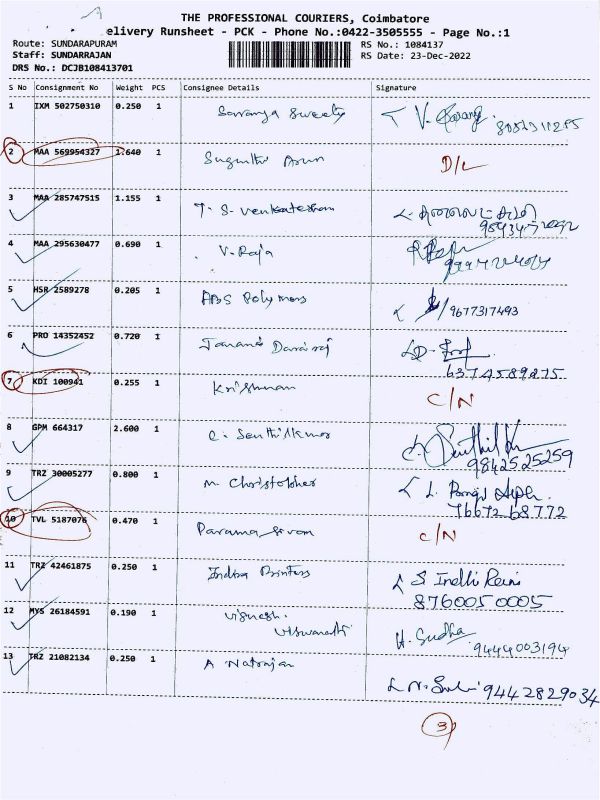 THE PROFESSIONAL COURIERS, Coimbatore
elivery Runsheet - PCK - Phone No.:0422-3505555 - Page No.:1
Route: SUNDARAPURAM RS No.: 1084137
Staff: SUNDARRAJAN RS Date: 23-Dec-2022
DRS No.: DCJB108413701
S No Consignment No Weight PCS Consignee Details Signature
1 IXM 502750310 0.250 1 Saranya Sweety
2 MAA 569954327 1.640 1 Sugunthi Arun D/L
3 MAA 285747515 1.155 1 T. S. Venkatesham
4 MAA 295630477 0.690 1 V. Raja
5 HSR 2589278 0.205 1 ABS Polymers 9677317493
6 PRO 14352452 0.720 1
6374589275
7 KDI 100941 0.255 1 Krishnan C/N
8 GPM 664317 2.600 1 C. Senthilkumar Senthil K
9842525259
9 TRZ 30005277 0.800 1 M. Christopher
76672 68772
10 TVL 5187076 0.470 1 Paramasivam C/N
11 TRZ 42461875 0.250 1 Indhu Printers S Indhi Rani
876005 0005
12 MYS 26184591 0.190 1 Vignesh.
Viswanath H. Sudha
9444003194
13 TRZ 21082134 0.250 1 A Natrajan
9442829034
3